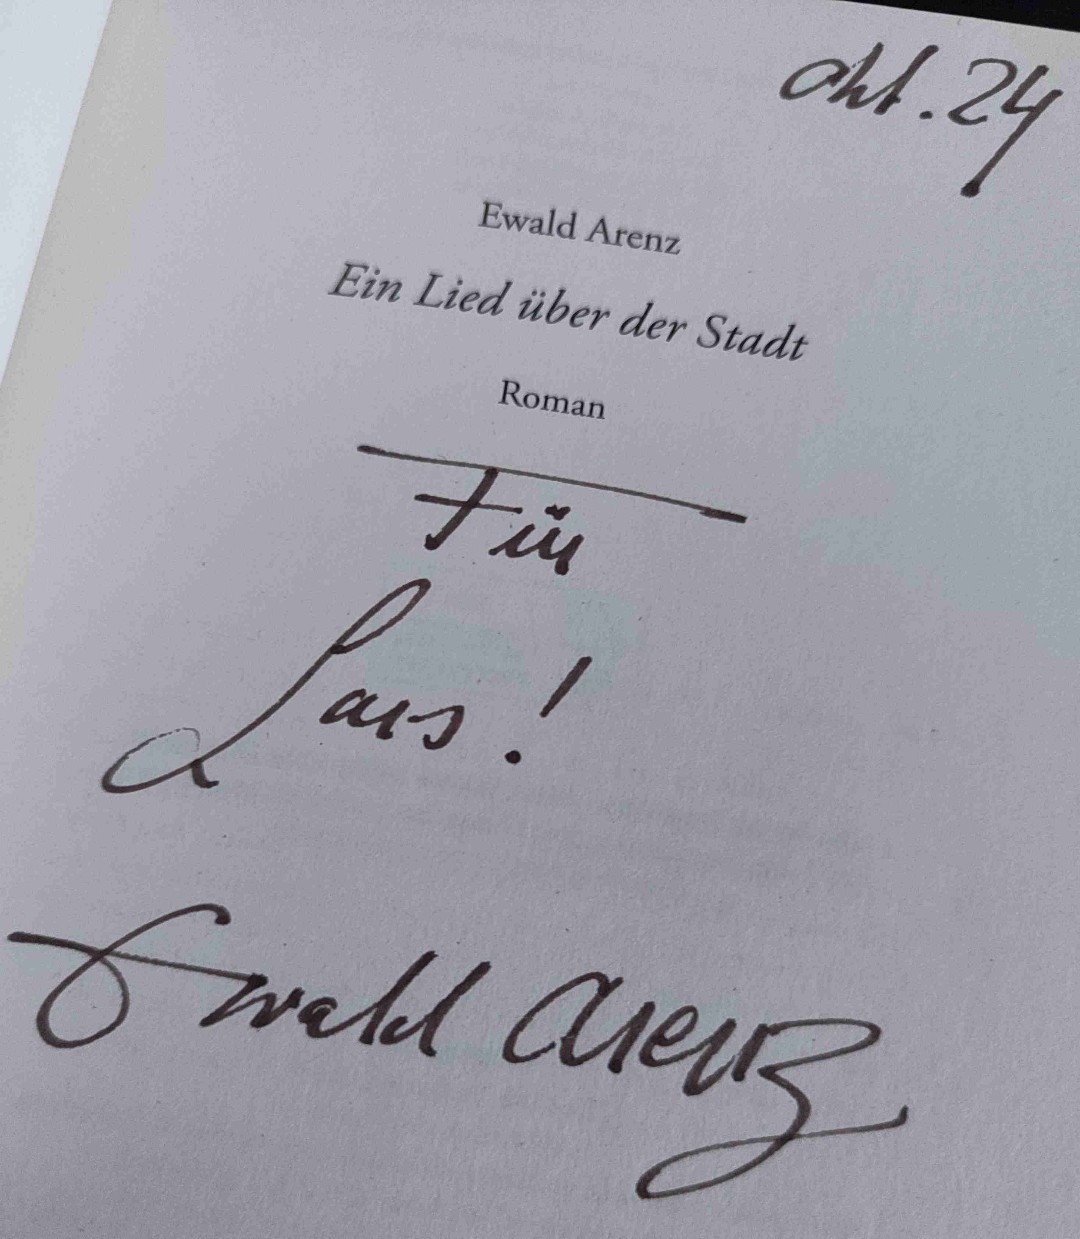 Okt. 24
Ewald Arenz
Ein Lied über der Stadt
Roman
Für
Lars!
Ewald Arenz